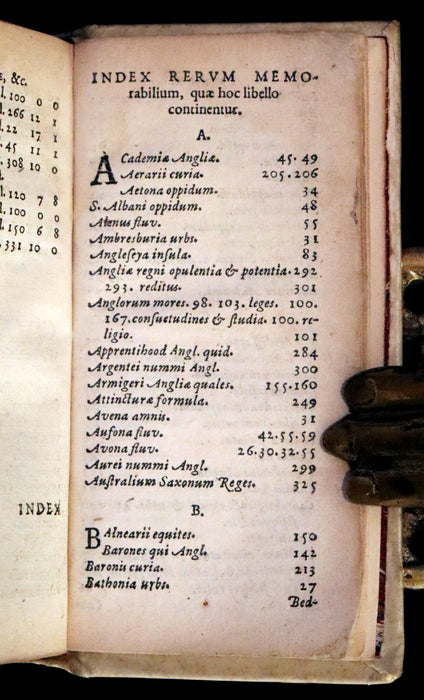 s, &c.
l. 100 0 0
l. 266 12 1
l. 22 17 1
. 45 11 1
. 308 10 0
l. 120 7 8
l. 100 0 0
l. 150 6 8
331 10 0
INDEX
INDEX RERVM MEMO-
rabilium, quæ hoc libello
continentur.
A.
ACademiæ Angliæ. 45. 49
Aerarii curia. 205. 206
Aetona oppidum. 34
S. Albani oppidum. 48
Alenus fluv. 55
Ambresburia urbs. 31
Angleseya insula. 83
Angliæ regni opulentia & potentia. 292.
293. reditus. 301
Anglorum mores. 98. 103. leges. 100.
167. consuetudines & studia. 100. re-
ligio. 101
Apprentihood Angl. quid. 284
Argentei nummi Angl. 300
Armigeri Angliæ quales. 155. 160
Attincturæ formula. 249
Avena amnis. 31
Aufona fluv. 42. 55. 59
Avona fluv. 26. 30. 32. 55
Aurei nummi Angl. 299
Australium Saxonum Reges. 325
B.
BAlnearii equites. 150
Barones qui Angl. 142
Baronis curia. 213
Bathonia urbs. 27
Bed-